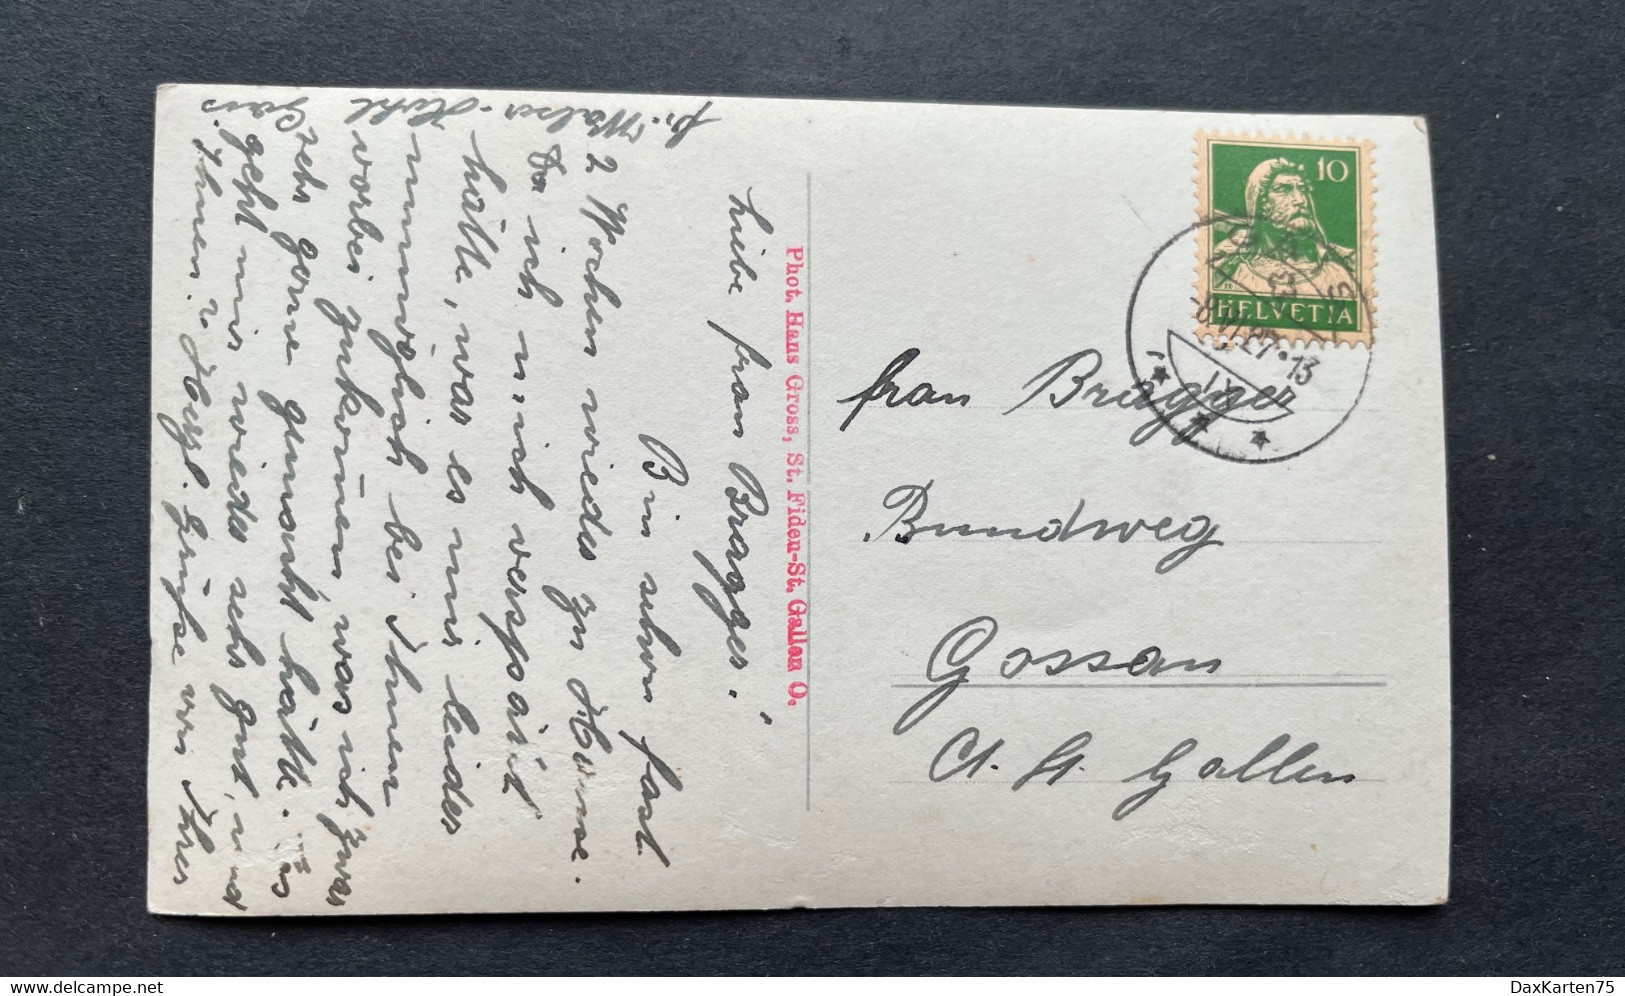 Liebe Frau Brägger!
Bin schon fast
2 Wochen wieder zu Hause.
Da ich mich verspätet
hätte, war es mir leider
unmöglich bei Ihnen
vorbei zukommen, was ich zwar
sehr gerne gemacht hätte. Es
geht mir wieder sehr gut, und
Ihnen? Herzl. Grüsse von Ihrer
Fr. Walser-Hohl
Gais.
Phot. Hans Gross, St. Fiden-St. Gallen O.
10
HELVETIA
Frau Brägger
Bundweg
Gossau
Ct. St. Gallen
DaxKarten75
delcampe.net